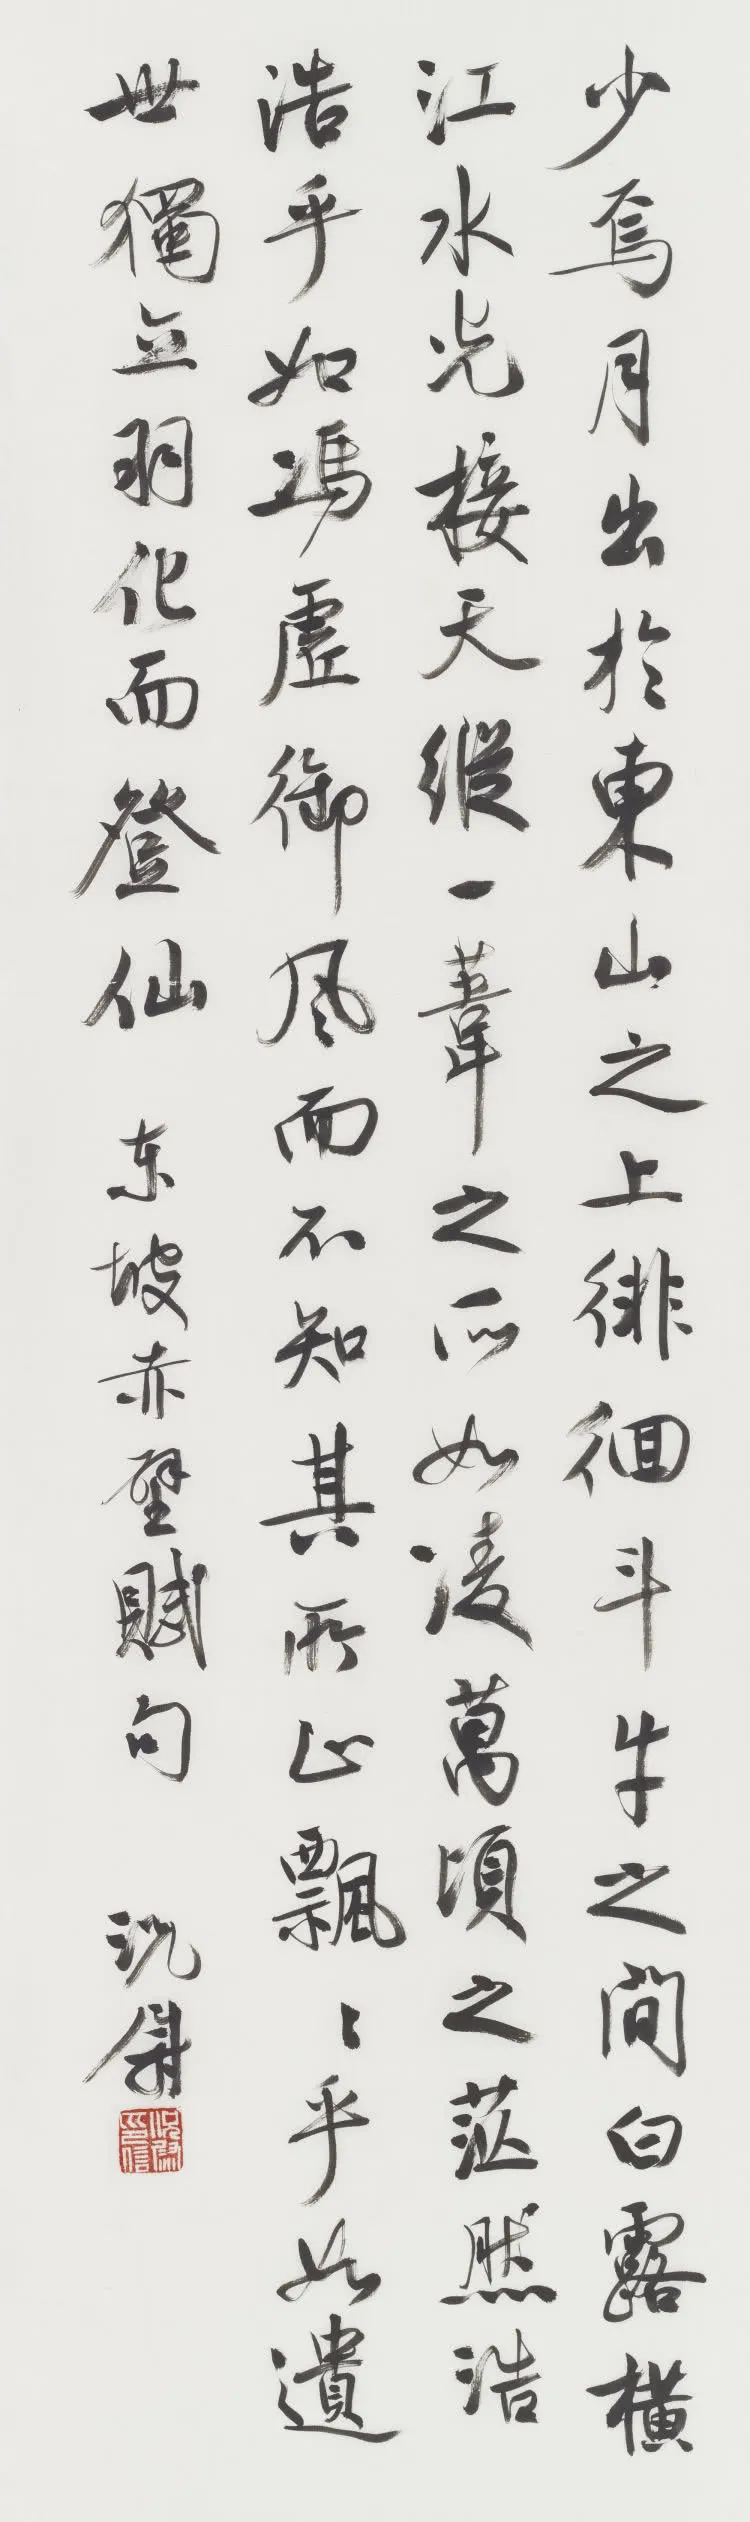 少焉月出於東山之上徘徊斗牛之間白露橫
江水光接天縱一葦之所如凌萬頃之茫然浩
浩乎如馮虛御风而不知其所止飄〻乎如遺
世獨立羽化而登仙 东坡赤壁賦句 況
印信